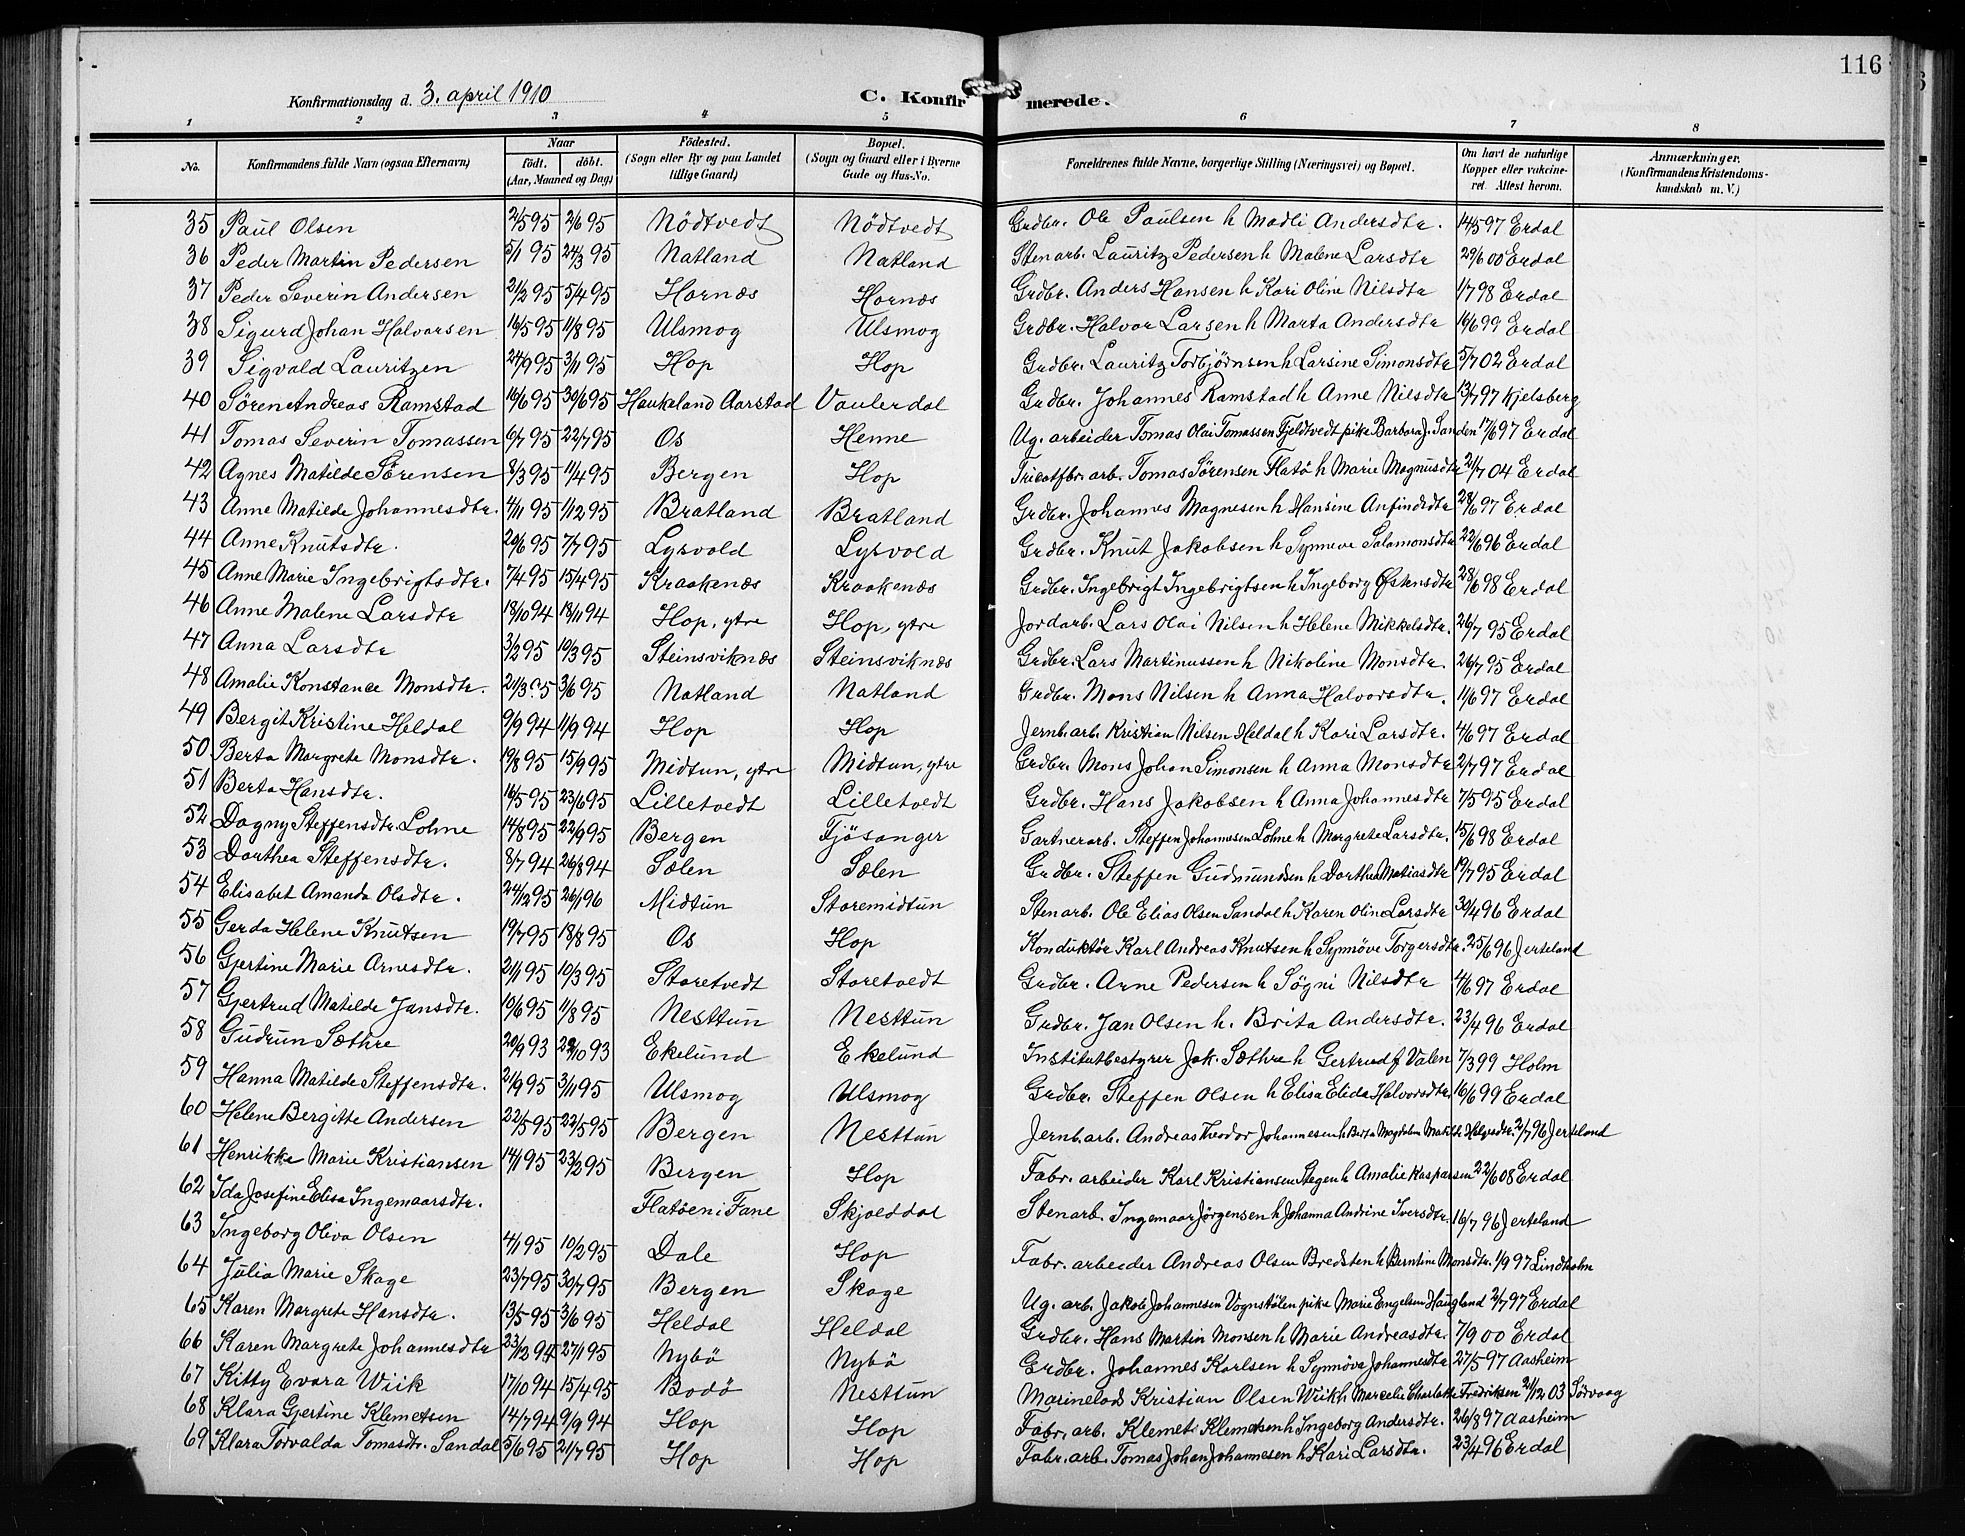 116
Konfirmationsdag d. 3. april 1910 C. Konfirmerede.
1 2 3 4 5 6 7 8
No. Konfirmandens fulde Navn (ogsaa Efternavn) Naar födt. döbt. (Aar, Maaned og Dag) Födested. (Sogn eller By og paa Landet tillige Gaard) Bopæl. (Sogn og Gaard eller i Byerne Gade og Hus-No. Forældrenes fulde Navne, borgerlige Stilling (Næringsvei) og Bopæl. Om havt de naturlige Kopper eller vakcineret. Attest herom. Anmærkninger. (Konfirmandens Kristendomskundskab m. V.)
35 Paul Olsen 2/5 95 2/6 95 Nödtvedt Nödtvedt Grdbr. Ole Paulsen h Madli Andersdtr. 14/5 97 Erdal
36 Peder Martin Pedersen 5/1 95 24/3 95 Natland Natland Stenarb. Lauritz Pedersen h Malene Larsdtr 29/6 00 Erdal
37 Peder Severin Andersen 21/2 95 5/4 95 Hornæs Hornæs Grdbr. Anders Hansen h Kari Oline Nilsdtr 1/7 98 Erdal
38 Sigurd Johan Halvorsen 16/5 95 11/8 95 Ulsmog Ulsmog Grdbr. Halvor Larsen h Marta Andersdtr 16/6 99 Erdal
39 Sigvald Lauritzen 24/9 95 3/11 95 Hop Hop Grdbr. Lauritz Torbjørnsen h Larsine Simonsdtr 5/7 02 Erdal
40 Sören Andreas Ramstad 16/6 95 30/6 95 Haukeland Aarstad Vaulerdal Grdbr. Johannes Ramstad h Anne Nilsdtr 13/7 97 Kjelsberg
41 Tomas Severin Tomassen 6/7 95 22/7 95 Os Henne Ug. arbeider Tomas Olai Tomassen Fjeldtvedt pike Barbara J. Sanden 17/6 97 Erdal
42 Agnes Matilde Sørensen 8/3 95 11/4 95 Bergen Hop Tricotfbr. arb. Tomas Sørensen Flatö h Marie Magnusdtr 21/7 04 Erdal
43 Anne Matilde Johannesdtr. 4/11 95 1/12 95 Bratland Bratland Grdbr. Johannes Magnesen h Hansine Anfindsdtr 28/6 97 Erdal
44 Anne Knutsdtr. 29/6 95 7/7 95 Lysvold Lysvold Grdbr. Knut Jakobsen h Synneve Salamonsdtr 22/6 96 Erdal
45 Anne Marie Ingebrigtsdtr. 7/4 95 15/4 95 Kraakenæs Kraakenæs Grdbr. Ingebrigt Ingebrigtsen h Ingeborg Østensdtr 28/6 98 Erdal
46 Anne Malene Larsdtr 18/10 94 18/11 94 Hop, ytre Hop, ytre Jordarb. Lars Olai Nilsen h Helene Mikkelsdtr. 26/7 95 Erdal
47 Anna Larsdtr 3/2 95 10/3 95 Steinsviknæs Steinsviknæs Grdbr. Lars Martinussen h Nikoline Monsdtr. 26/7 95 Erdal
48 Amalie Konstance Monsdtr. 21/3 95 3/6 95 Natland Natland Grdbr. Mons Nilsen h Anna Halvorsdtr. 11/6 97 Erdal
49 Bergit Kristine Heldal 9/9 94 11/9 94 Hop Hop Jernb.arb. Kristian Nilsen Heldal h Kari Larsdtr. 4/6 97 Erdal
50 Berta Margrete Monsdtr. 19/8 95 15/9 95 Midtun, ytre Midtun, ytre Grdbr. Mons Johan Simonsen h Anna Monsdtr 2/7 97 Erdal
51 Berta Hansdtr. 16/5 95 23/6 95 Lilletvedt Lilletvedt Grdbr. Hans Jakobsen h Anna Johannesdtr 7/5 95 Erdal
52 Dagny Steffensdtr. Lohne 14/8 95 22/9 95 Bergen Fjösanger Gartnerarb. Steffen Johannessen Lohne h Margrete Larsdtr. 15/6 98 Erdal
53 Dorthea Steffensdtr. 8/7 94 26/8 94 Sælen Sælen Grdbr. Steffen Gudmundsen h Dorthea Matiasdtr 19/7 95 Erdal
54 Elisabet Amanda Olsdtr. 24/12 95 26/1 96 Midtun Storemidtun Stenarb. Ole Elias Olsen Sandal h Karen Oline Larsdtr 30/4 96 Erdal
55 Gerda Helene Knutsen 19/7 95 18/8 95 Os Hop Konduktör Karl Andreas Knutsen h Synnöve Torgersdtr. 25/6 96 Jerteland
56 Gjertine Marie Arnesdtr. 21/1 95 10/3 95 Storetvedt Storetvedt Grdbr. Arne Pedersen h Sögni Nilsdtr 4/6 97 Erdal
57 Gjertrud Matilde Jansdtr. 10/6 95 11/8 95 Nesttun Nesttun Grdbr. Jan Olsen h. Brita Andersdtr. 23/4 96 Erdal
58 Gudrun Sæthre 20/9 93 29/10 93 Ekelund Ekelund Institutbestyrer Jak. Sæthre h Gertrud f Valen 7/3 99 Holm
59 Hanna Matilde Steffensdtr. 21/9 95 3/11 95 Ulsmog Ulsmog Grdbr. Steffen Olsen h Elisa Elida Halvorsdtr. 16/6 99 Erdal
60 Helene Bergitte Andersen 22/5 95 22/5 95 Bergen Nesttun Jernb.arb. Andreas Theodor Johannesen h Berta Magdalena Matilde Helgesdtr. 2/7 96 Jerteland
61 Henrikke Marie Kristiansen 14/1 95 23/2 95 Bergen Hop Fabr. arbeider Karl Kristiansen Stegen h Amalie Kaspersen 22/6 08 Erdal
62 Ida Josefine Elisa Ingemaarsdtr. Flatöen i Fane Skjolddal Stenarb. Ingemaar Jørgensen h Johanna Andrine Iversdtr. 16/7 96 Jerteland
63 Ingeborg Oliva Olsen 4/1 95 10/2 95 Dale Hop Fabr. arbeider Andreas Olsen Bredsten h Berntine Monsdtr. 1/9 97 Lindholm
64 Julia Marie Skage 23/7 95 30/7 95 Bergen Skage Ug. arb. Jakob Johannesen Vognstölen pike Marie Engelsen Haugland 2/7 97 Erdal
65 Karen Margrete Hansdtr. 13/5 95 3/6 95 Heldal Heldal Grdbr. Hans Martin Monsen h Marie Andreasdtr. 7/9 00 Erdal
66 Karen Margrete Johannesdtr 23/12 94 27/1 95 Nybö Nybö Grdbr. Johannes Karlsen h Synnöva Johannesdtr 27/5 97 Aasheim
67 Kitty Evara Wiik 17/10 94 15/4 95 Bodö Nesttun Marinelods Kristian Olsen Wiik h Marcelie Charlotte Fredriksen 21/12 03 Sörvaag
68 Klara Gjertine Klemetsen 14/7 94 9/9 94 Hop Hop Fabr. arb. Klemet Klemetsen h Ingeborg Andersdtr. 26/8 97 Aasheim
69 Klara Torvalda Tomasdtr. Sandal 5/6 95 21/7 95 Hop Hop Fabr. arb. Tomas Johan Johannesen h Kari Larsdtr. 23/4 96 Erdal